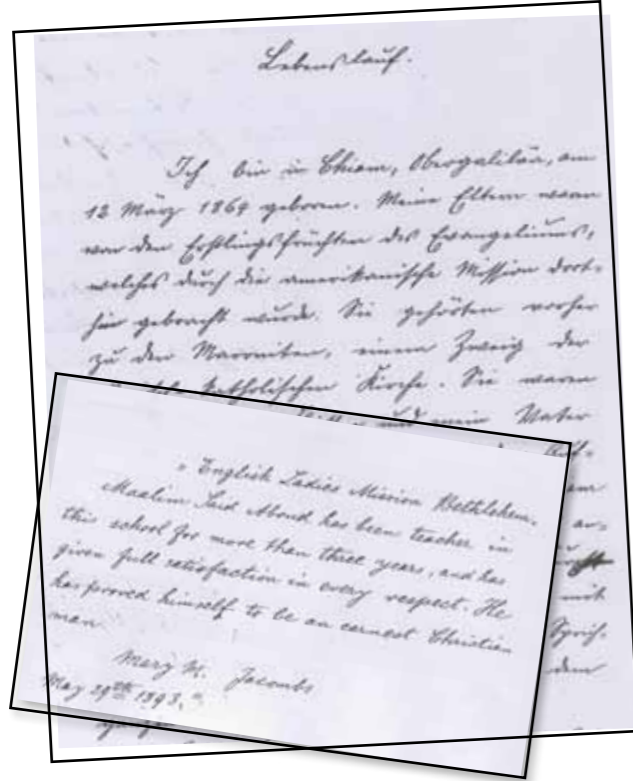 Lebenslauf.
Ich bin in Chiam, Obergaliläa, am
12 März 1869 geboren. Meine Eltern waren
von den Erstlingsfrüchten des Evangeliums,
welches durch die amerikanische Mission dort-
hin gebracht wurde. Sie gehörten vorher
zu den Maroniten, einem Zweig der
katholischen Kirche. Sie waren
und mein Vater
mit
Sprich-
dem
"English Ladies Mission Bethlehem.
Maalim Said Aboud has been teacher in
this school for more than three years, and has
given full satisfaction in every respect. He
has proved himself to be an earnest Christian
man
Mary M. Jacombs
May 29th 1893."